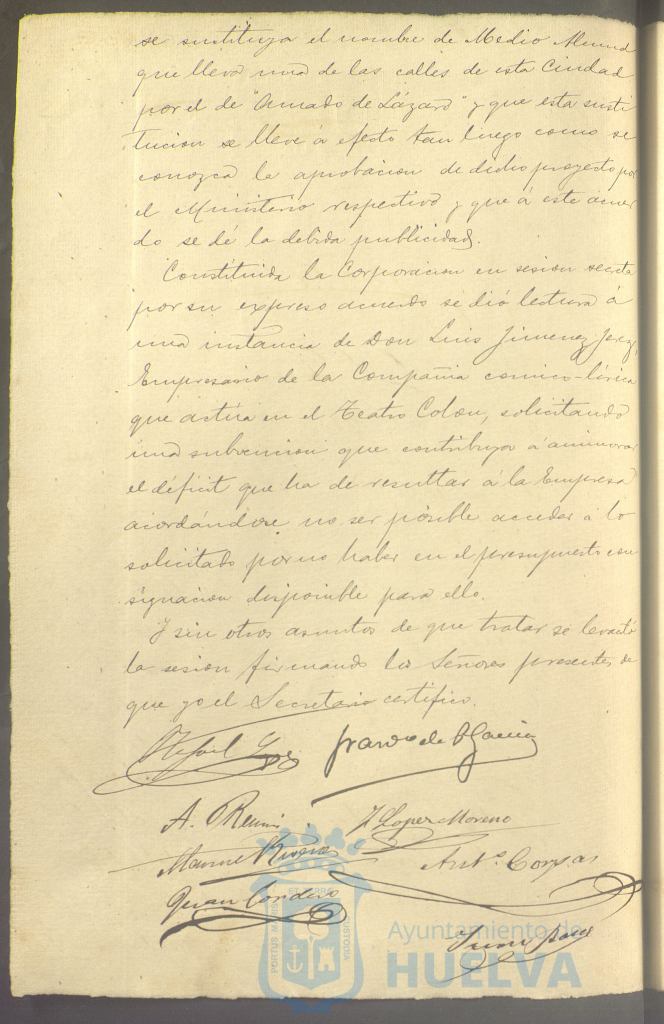 se sustituya el nombre de Medio Almud
que lleva una de las calles de esta Ciudad
por el de "Amado de Lázaro" y que esta susti
tucion se lleve á efecto tan luego como se
conozca la aprobacion de dicho proyecto por
el Ministerio respectivo y que á este acuer
do se dé la debida publicidad.
Constituida la Corporacion en sesion secreta
por su expreso acuerdo se dió lectura á
una instancia de Don Luis Jimenez
Empresario de la Compañia comico-lírica
que actúa en el Teatro Colon, solicitando
una subvencion que contribuya á aminorar
el déficit que ha de resultar á la Empresa
acordándose no ser posible acceder á lo
solicitado por no haber en el presupuesto con
signacion disponible para ello.
Y sin otros asuntos de que tratar se levantó
la sesion firmando los Señores presentes de
que yo el Secretario certifico.
Rafael
de
A. Lopez Moreno
Manuel
Ant.º Corpas
Juan Cordero
PORTUS MARIS ET TERRÆ CUSTODIA
Ayuntamiento de
HUELVA